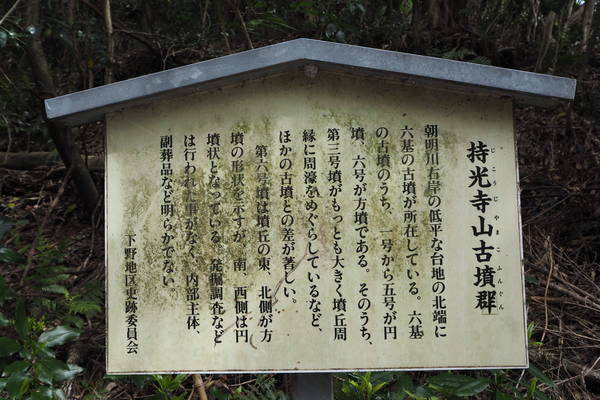 持光寺山古墳群
じこうじやまこふんぐん
朝明川右岸の低平な台地の北端に
六基の古墳が所在している。六基
の古墳のうち、一号から五号が円
墳、六号が方墳である。そのうち、
第三号墳がもっとも大きく墳丘周
縁に周濠をめぐらしているなど、
ほかの古墳との差が著しい。
第六号墳は墳丘の東、北側が方
墳の形状を示すが、南、西側は円
墳状となっている。発掘調査など
は行われた事がなく、内部主体、
副葬品など明らかでない。
下野地区史跡委員会